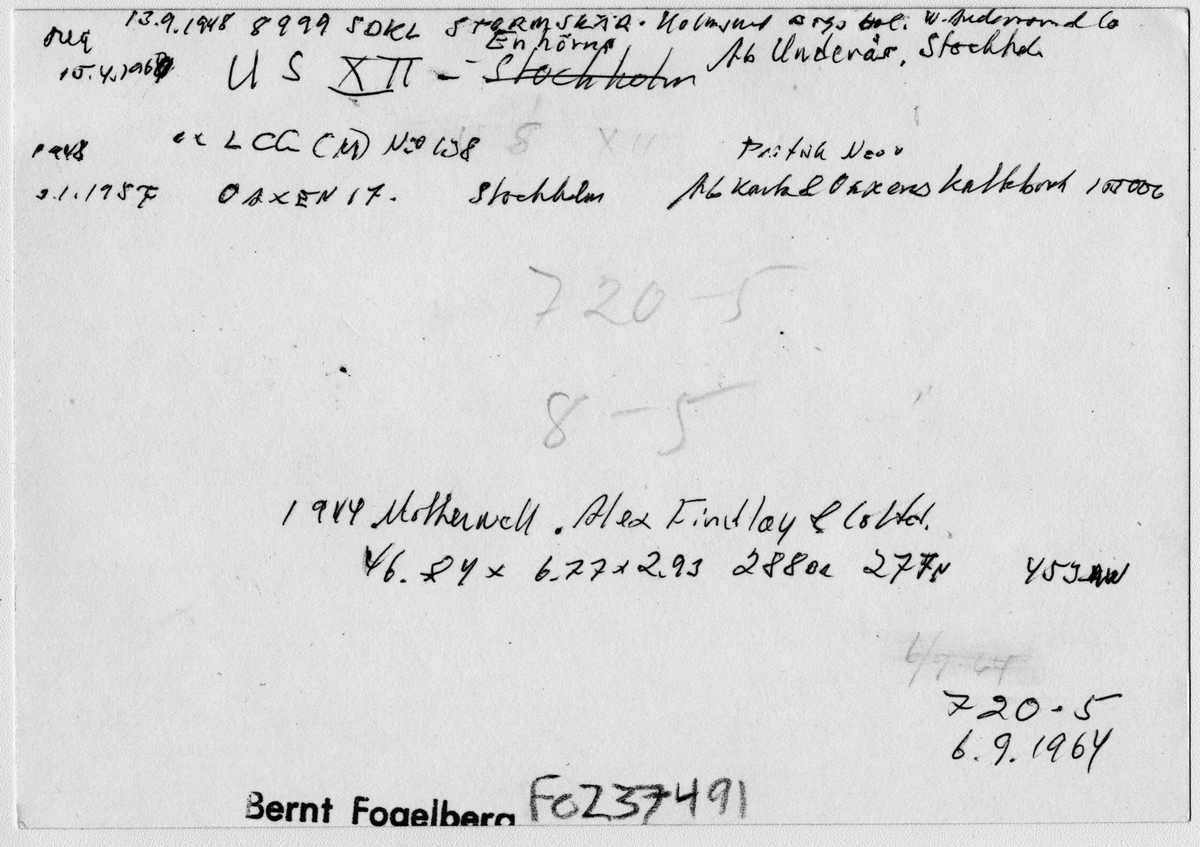 reg 13.9.1948 8999 SDKL STORMSKÄR. Holmsund W. Anderson & Co
Enhörna
15.4.1960 U S XII – Stockholm Ab Underås, Stockholm
1948 ex LCG (M) No 138 8 XII
OAXEN 17. Stockholm Ab Karta & Oaxens Kalkbruk
720 – 5
8 – 5
1944 Motherwell. Alex Findlay & Co Ltd.
46.84 x 6.77 x 2.93 288 277N
720 - 5
6.9.1964
Bernt Fogelberg Fo237491